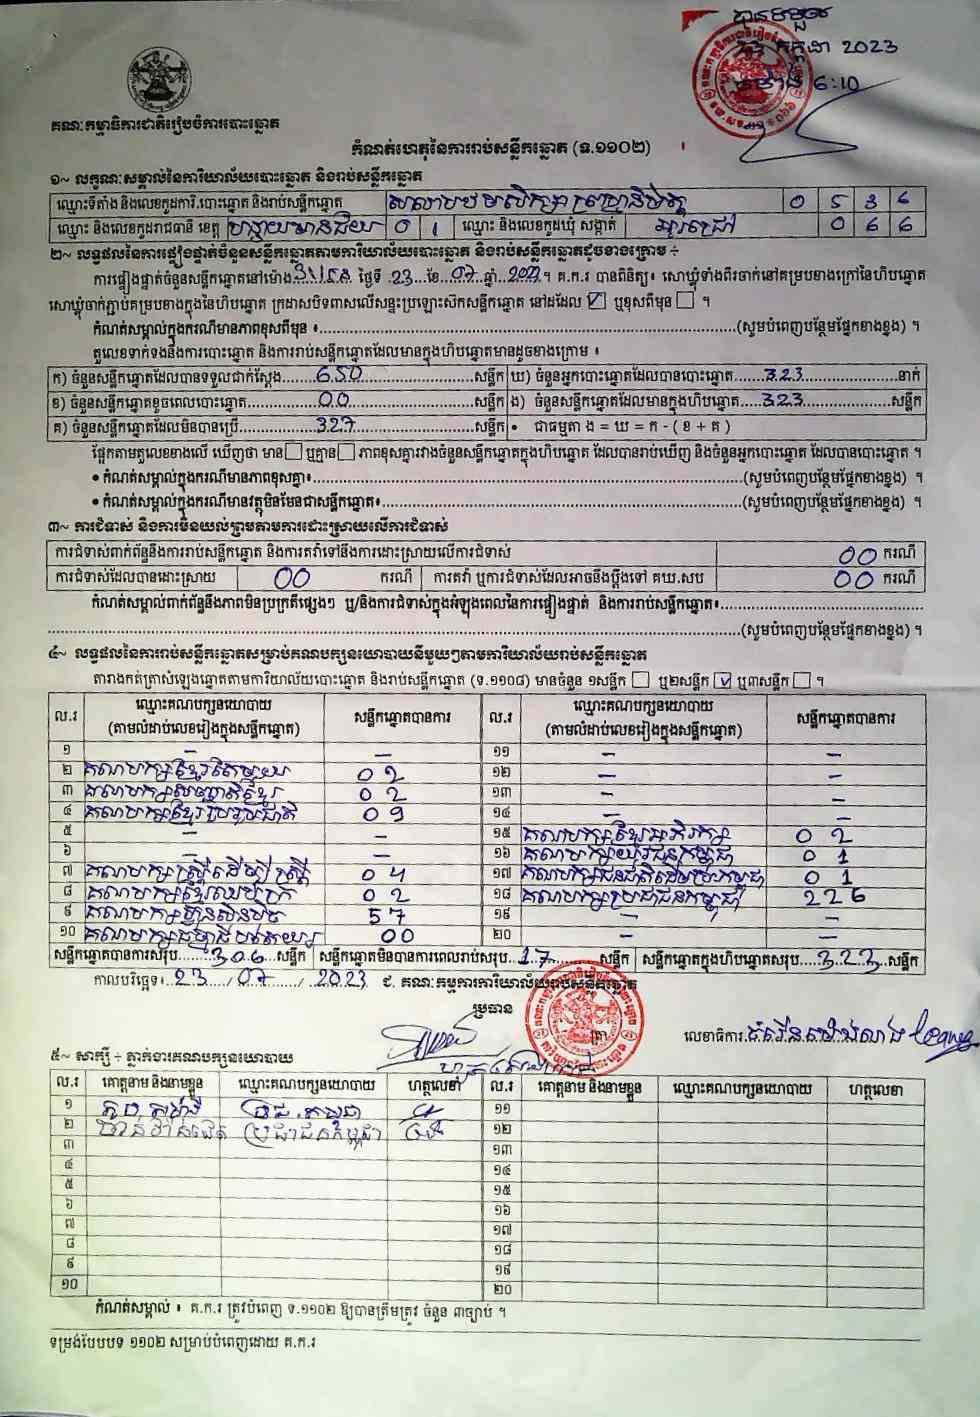 បានទទួល
23 កក្កដា 2023
ម៉ោង 6:10
គណៈកម្មាធិការជាតិរៀបចំការបោះឆ្នោត
កំណត់ហេតុនៃការរាប់សន្លឹកឆ្នោត (ទ.១១០២)
១~ លក្ខណៈសម្គាល់នៃការិយាល័យបោះឆ្នោត និងរាប់សន្លឹកឆ្នោត
ឈ្មោះទីតាំង និងលេខកូដការិ.បោះឆ្នោត និងរាប់សន្លឹកឆ្នោត សាលាបឋមសិក្សា 0 5 3 6
ឈ្មោះ និងលេខកូដរាជធានី ខេត្ត បន្ទាយមានជ័យ 0 1 ឈ្មោះ និងលេខកូដឃុំ សង្កាត់ អូរជ្រៅ 0 6 6
២~ លទ្ធផលនៃការផ្ទៀងផ្ទាត់ចំនួនសន្លឹកឆ្នោតតាមការិយាល័យបោះឆ្នោត និងរាប់សន្លឹកឆ្នោតដូចខាងក្រោម ÷
ការផ្ទៀងផ្ទាត់ចំនួនសន្លឹកឆ្នោតនៅម៉ោង ថ្ងៃទី 23 ខែ 07 ឆ្នាំ 2023 ។ គ.ក.រ បានពិនិត្យ៖ សោឃ្លុំទាំងពីរចាក់នៅគម្របខាងក្រៅនៃហិបឆ្នោត
សោឃ្លុំចាក់ភ្ជាប់គម្របខាងក្នុងនៃហិបឆ្នោត ក្រដាសបិទពាសលើសន្ទះប្រឡោះស៊កសន្លឹកឆ្នោត នៅដដែល ☑ ឬខុសពីមុន ☐ ។
កំណត់សម្គាល់ក្នុងករណីមានភាពខុសពីមុន ៖ (សូមបំពេញបន្ថែមផ្នែកខាងខ្នង) ។
តួលេខទាក់ទងនឹងការបោះឆ្នោត និងការរាប់សន្លឹកឆ្នោតដែលមានក្នុងហិបឆ្នោតមានដូចខាងក្រោម ៖
ក) ចំនួនសន្លឹកឆ្នោតដែលបានទទួលជាក់ស្ដែង 650 សន្លឹក ឃ) ចំនួនអ្នកបោះឆ្នោតដែលបានបោះឆ្នោត 323 នាក់
ខ) ចំនួនសន្លឹកឆ្នោតខូចពេលបោះឆ្នោត 00 សន្លឹក ង) ចំនួនសន្លឹកឆ្នោតដែលមានក្នុងហិបឆ្នោត 323 សន្លឹក
គ) ចំនួនសន្លឹកឆ្នោតដែលមិនបានប្រើ 327 សន្លឹក • ជាធម្មតា ង = ឃ = ក - ( ខ + គ )
ផ្អែកតាមតួលេខខាងលើ ឃើញថា មាន ☐ ឬគ្មាន ☐ ភាពខុសគ្នារវាងចំនួនសន្លឹកឆ្នោតក្នុងហិបឆ្នោត ដែលបានរាប់ឃើញ និងចំនួនអ្នកបោះឆ្នោត ដែលបានបោះឆ្នោត ។
• កំណត់សម្គាល់ក្នុងករណីមានភាពខុសគ្នា៖ (សូមបំពេញបន្ថែមផ្នែកខាងខ្នង) ។
• កំណត់សម្គាល់ក្នុងករណីមានវត្ថុមិនមែនជាសន្លឹកឆ្នោត៖ (សូមបំពេញបន្ថែមផ្នែកខាងខ្នង) ។
៣~ ការជំទាស់ និងការមិនយល់ព្រមតាមការដោះស្រាយលើការជំទាស់
ការជំទាស់ពាក់ព័ន្ធនឹងការរាប់សន្លឹកឆ្នោត និងការតវ៉ាទៅនឹងការដោះស្រាយលើការជំទាស់ 00 ករណី
ការជំទាស់ដែលបានដោះស្រាយ 00 ករណី ការតវ៉ា ឬការជំទាស់ដែលអាចនឹងប្ដឹងទៅ គឃ.សប 00 ករណី
កំណត់សម្គាល់ពាក់ព័ន្ធនឹងភាពមិនប្រក្រតីផ្សេងៗ ឬ/និងការជំទាស់ក្នុងអំឡុងពេលនៃការផ្ទៀងផ្ទាត់ និងការរាប់សន្លឹកឆ្នោត៖
(សូមបំពេញបន្ថែមផ្នែកខាងខ្នង) ។
៤~ លទ្ធផលនៃការរាប់សន្លឹកឆ្នោតសម្រាប់គណបក្សនយោបាយនីមួយៗតាមការិយាល័យរាប់សន្លឹកឆ្នោត
តារាងកត់ត្រាសំឡេងឆ្នោតតាមការិយាល័យបោះឆ្នោត និងរាប់សន្លឹកឆ្នោត (ទ.១១០៨) មានចំនួន ១សន្លឹក ☐ ឬ២សន្លឹក ☑ ឬ៣សន្លឹក ☐ ។
ល.រ ឈ្មោះគណបក្សនយោបាយ (តាមលំដាប់លេខរៀងក្នុងសន្លឹកឆ្នោត) សន្លឹកឆ្នោតបានការ ល.រ ឈ្មោះគណបក្សនយោបាយ (តាមលំដាប់លេខរៀងក្នុងសន្លឹកឆ្នោត) សន្លឹកឆ្នោតបានការ
១ – – ១១ – –
២ គណបក្សខ្មែរតែមួយ 02 ១២ – –
៣ គណបក្សសញ្ជាតិខ្មែរ 02 ១៣ – –
៤ គណបក្សខ្មែររួបរួមជាតិ 09 ១៤ – –
៥ – – ១៥ គណបក្សខ្មែរអភិរក្ស 02
៦ – – ១៦ គណបក្សយុវជនកម្ពុជា 01
៧ គណបក្សស្ត្រីដើម្បីស្ត្រី 04 ១៧ គណបក្សជនជាតិដើមប្រជាកម្ពុជា 01
៨ គណបក្សខ្មែរឈប់ក្រ 02 ១៨ គណបក្សប្រជាជនកម្ពុជា 226
៩ គណបក្សហ្វ៊ុនស៊ិនប៉ិច 57 ១៩ – –
១០ គណបក្សធម្មាធិបតេយ្យ 00 ២០ – –
សន្លឹកឆ្នោតបានការសរុប 306 សន្លឹក សន្លឹកឆ្នោតមិនបានការពេលរាប់សរុប 17 សន្លឹក សន្លឹកឆ្នោតក្នុងហិបឆ្នោតសរុប 323 សន្លឹក
កាលបរិច្ឆេទ៖ 23 / 07 / 2023 ជ. គណៈកម្មការការិយាល័យរាប់សន្លឹកឆ្នោត
ប្រធាន
ត្រា លេខាធិការ
៥~ សាក្សី ÷ ភ្នាក់ងារគណបក្សនយោបាយ
ល.រ គោត្តនាម និងនាមខ្លួន ឈ្មោះគណបក្សនយោបាយ ហត្ថលេខា ល.រ គោត្តនាម និងនាមខ្លួន ឈ្មោះគណបក្សនយោបាយ ហត្ថលេខា
១ ១១
២ ប្រជាជនកម្ពុជា ១២
៣ ១៣
៤ ១៤
៥ ១៥
៦ ១៦
៧ ១៧
៨ ១៨
៩ ១៩
១០ ២០
កំណត់សម្គាល់ ៖ គ.ក.រ ត្រូវបំពេញ ទ.១១០២ ឱ្យបានត្រឹមត្រូវ ចំនួន ៣ច្បាប់ ។
ទម្រង់បែបបទ ១១០២ សម្រាប់បំពេញដោយ គ.ក.រ